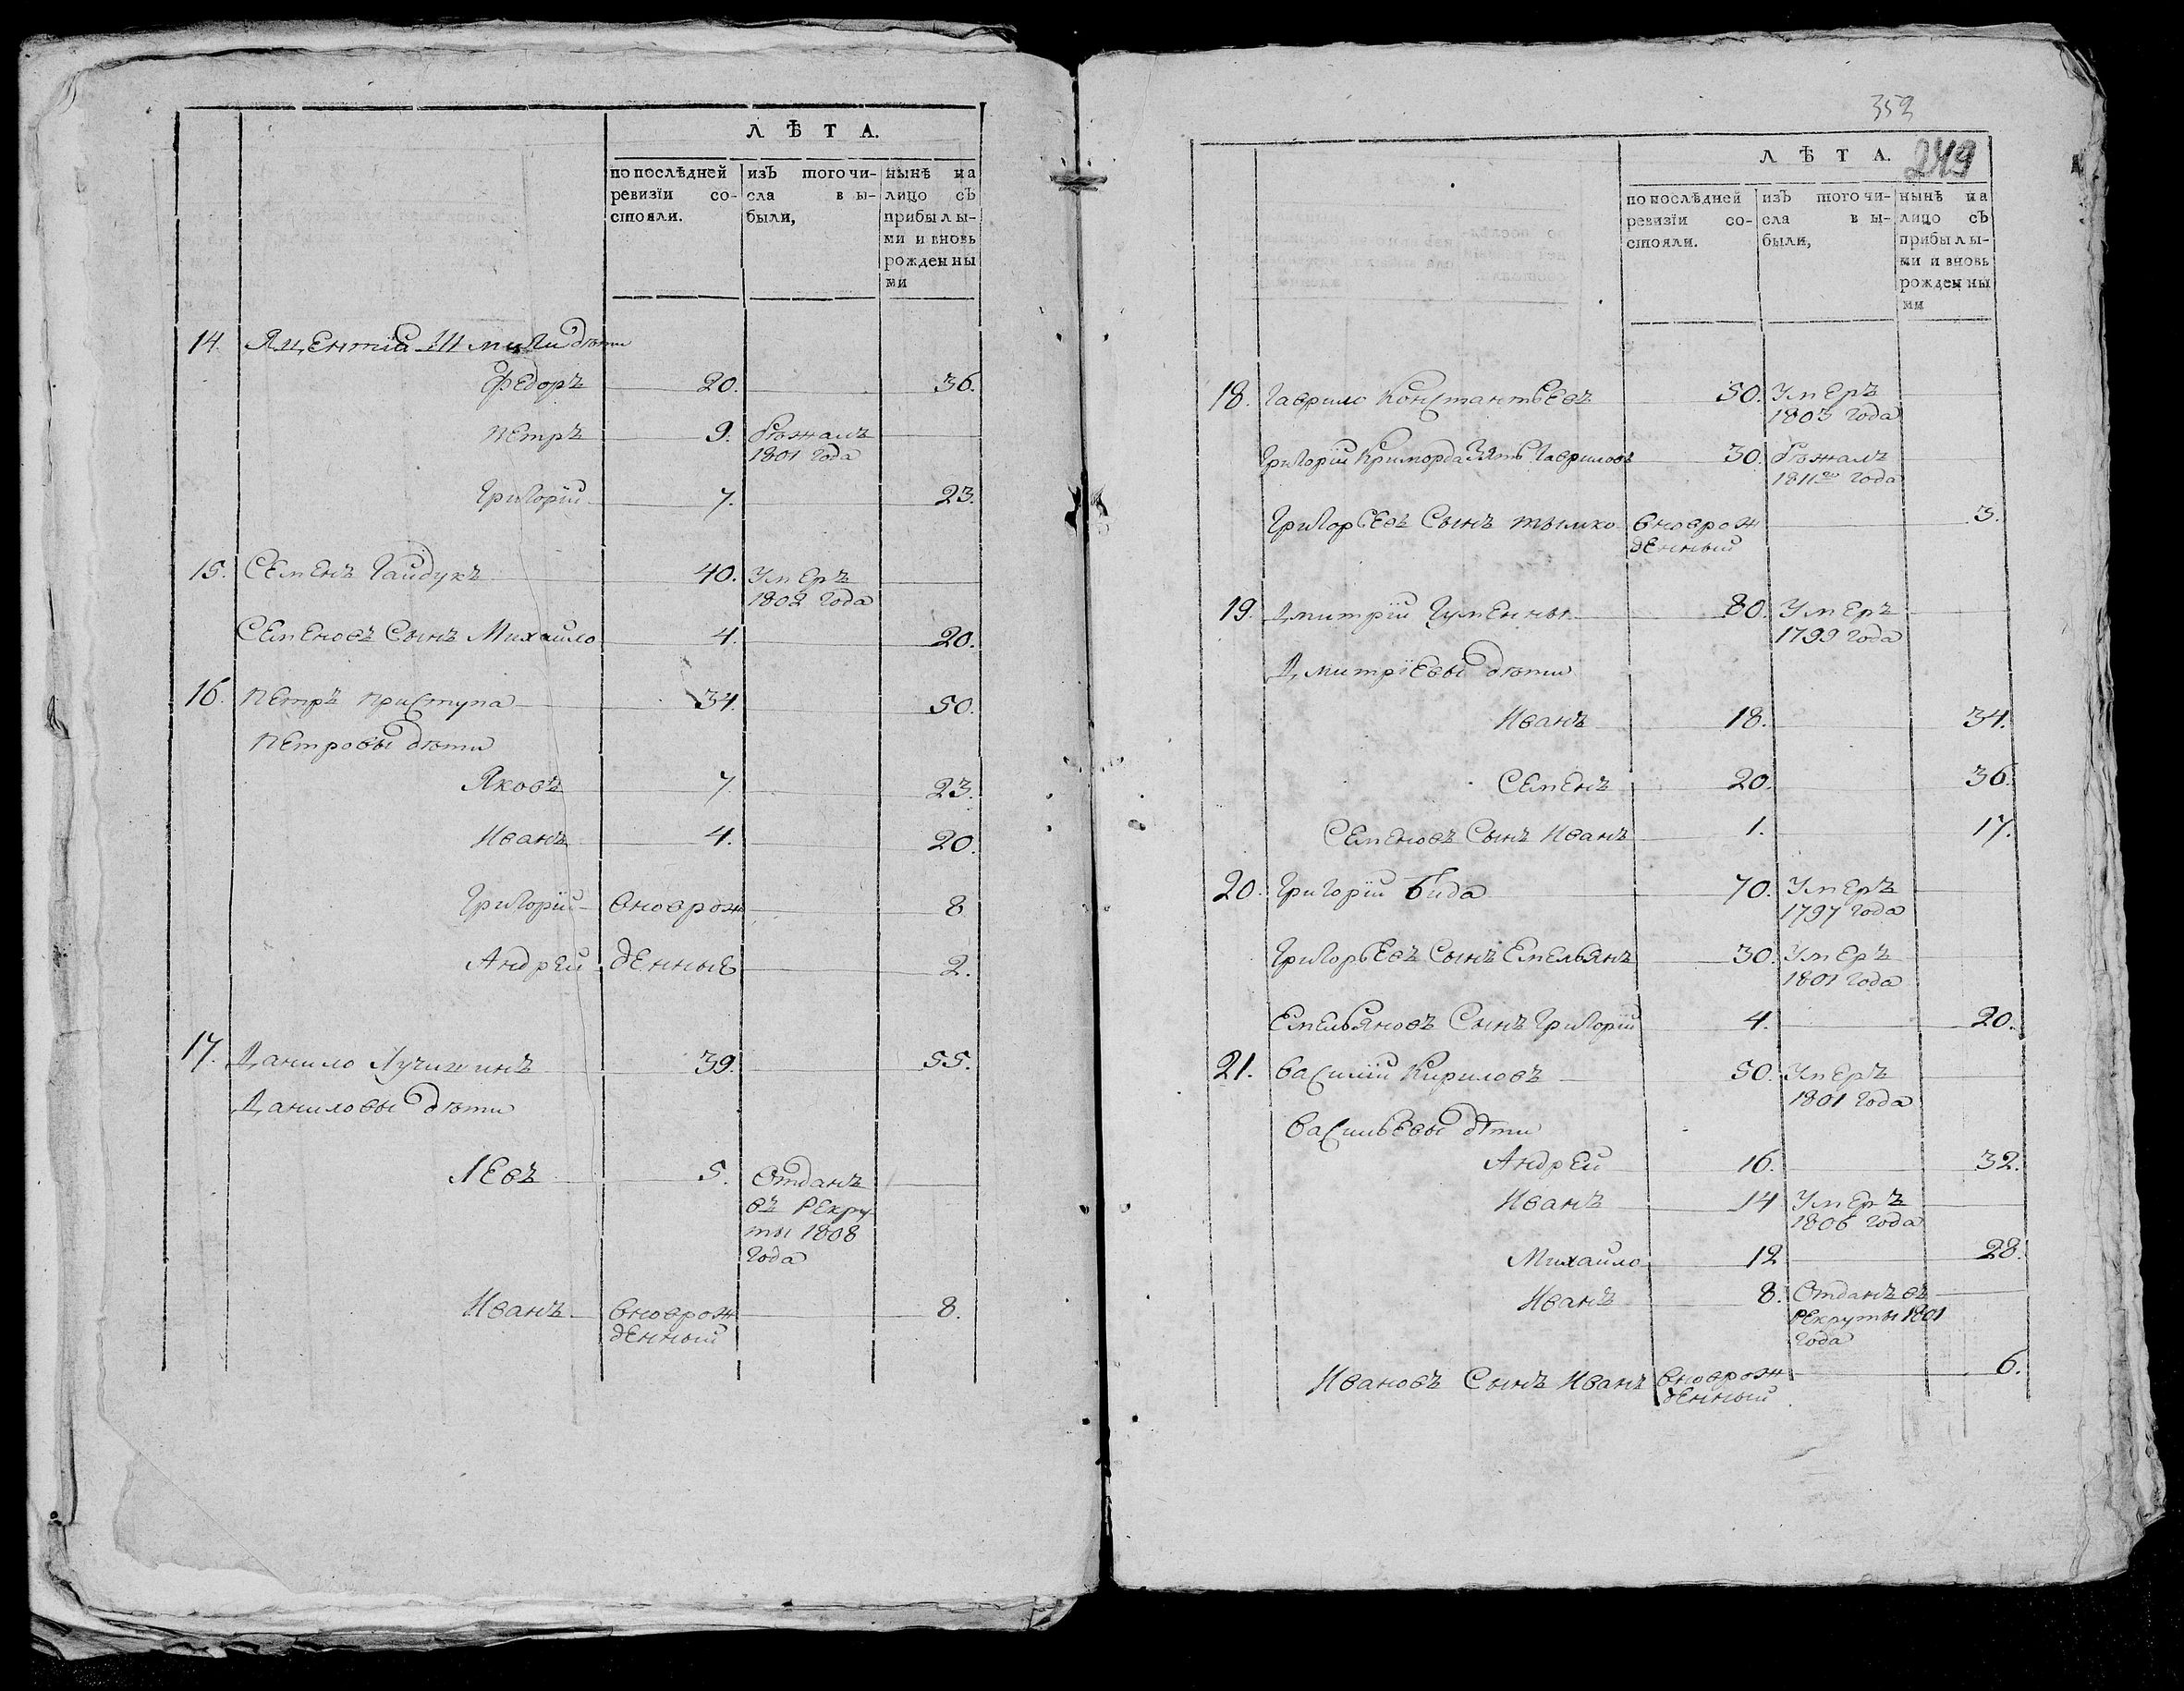 Л Ѣ Т А.
по послѣдней ревизїи состояли.
изЪ того числа выбыли,
нынѣ на лицо сЪ прибылыми и вновь рожденными
14. Яцентїя дѣти
Федоръ 20. 36.
Петръ 9. Бѣжалъ
1801 года
Григорїй 7. 23.
15. Семенъ Гайдукъ 40. Умеръ
1802 года
Семеновъ Сынъ Михайло 4. 20.
16. Петръ Приступа 34. 50.
Петровы дѣти
Яковъ 7. 23.
Иванъ 4. 20.
Григорїй вноврож 8
Андрей денные 2.
17. Данило Лучишинъ 39. 55.
Даниловы дѣти
Левъ 5. Отданъ
въ Рекру
ты 1808
года
Иванъ вноврож 8.
денный
353
249
Л Ѣ Т А.
по послѣдней ревизїи состояли.
изЪ того числа выбыли,
нынѣ на лицо сЪ прибылыми и вновь рожденными
18. Гаврило Константьевъ 50. Умеръ
1803 года
Григорїй Зять Гавриловъ 30. Бѣжалъ
1811го года
Григорьевъ Сынъ Тымко вноврож 3.
денный
19. Дмитрїй Гуменны 80. Умеръ
1799 года
Дмитрїевы дѣти
Иванъ 18. 34.
Семенъ 20. 36.
Семеновъ Сынъ Иванъ 1. 17.
20. Григорїй Бида 70. Умеръ
1797 года
Григорьевъ Сынъ Емельянъ 30. Умеръ
1801 года
Емельяновъ Сынъ Григорїй 4. 20.
21. Василїй Кириловъ 50. Умеръ
1801 года
Васильевы дѣти
Андрей 16. 32.
Иванъ 14 Умеръ
1806 года
Михайло 12 28.
Иванъ 8. Отданъ въ
Рекруты 1801
года
Ивановъ Сынъ Иванъ вноврож 6.
денный